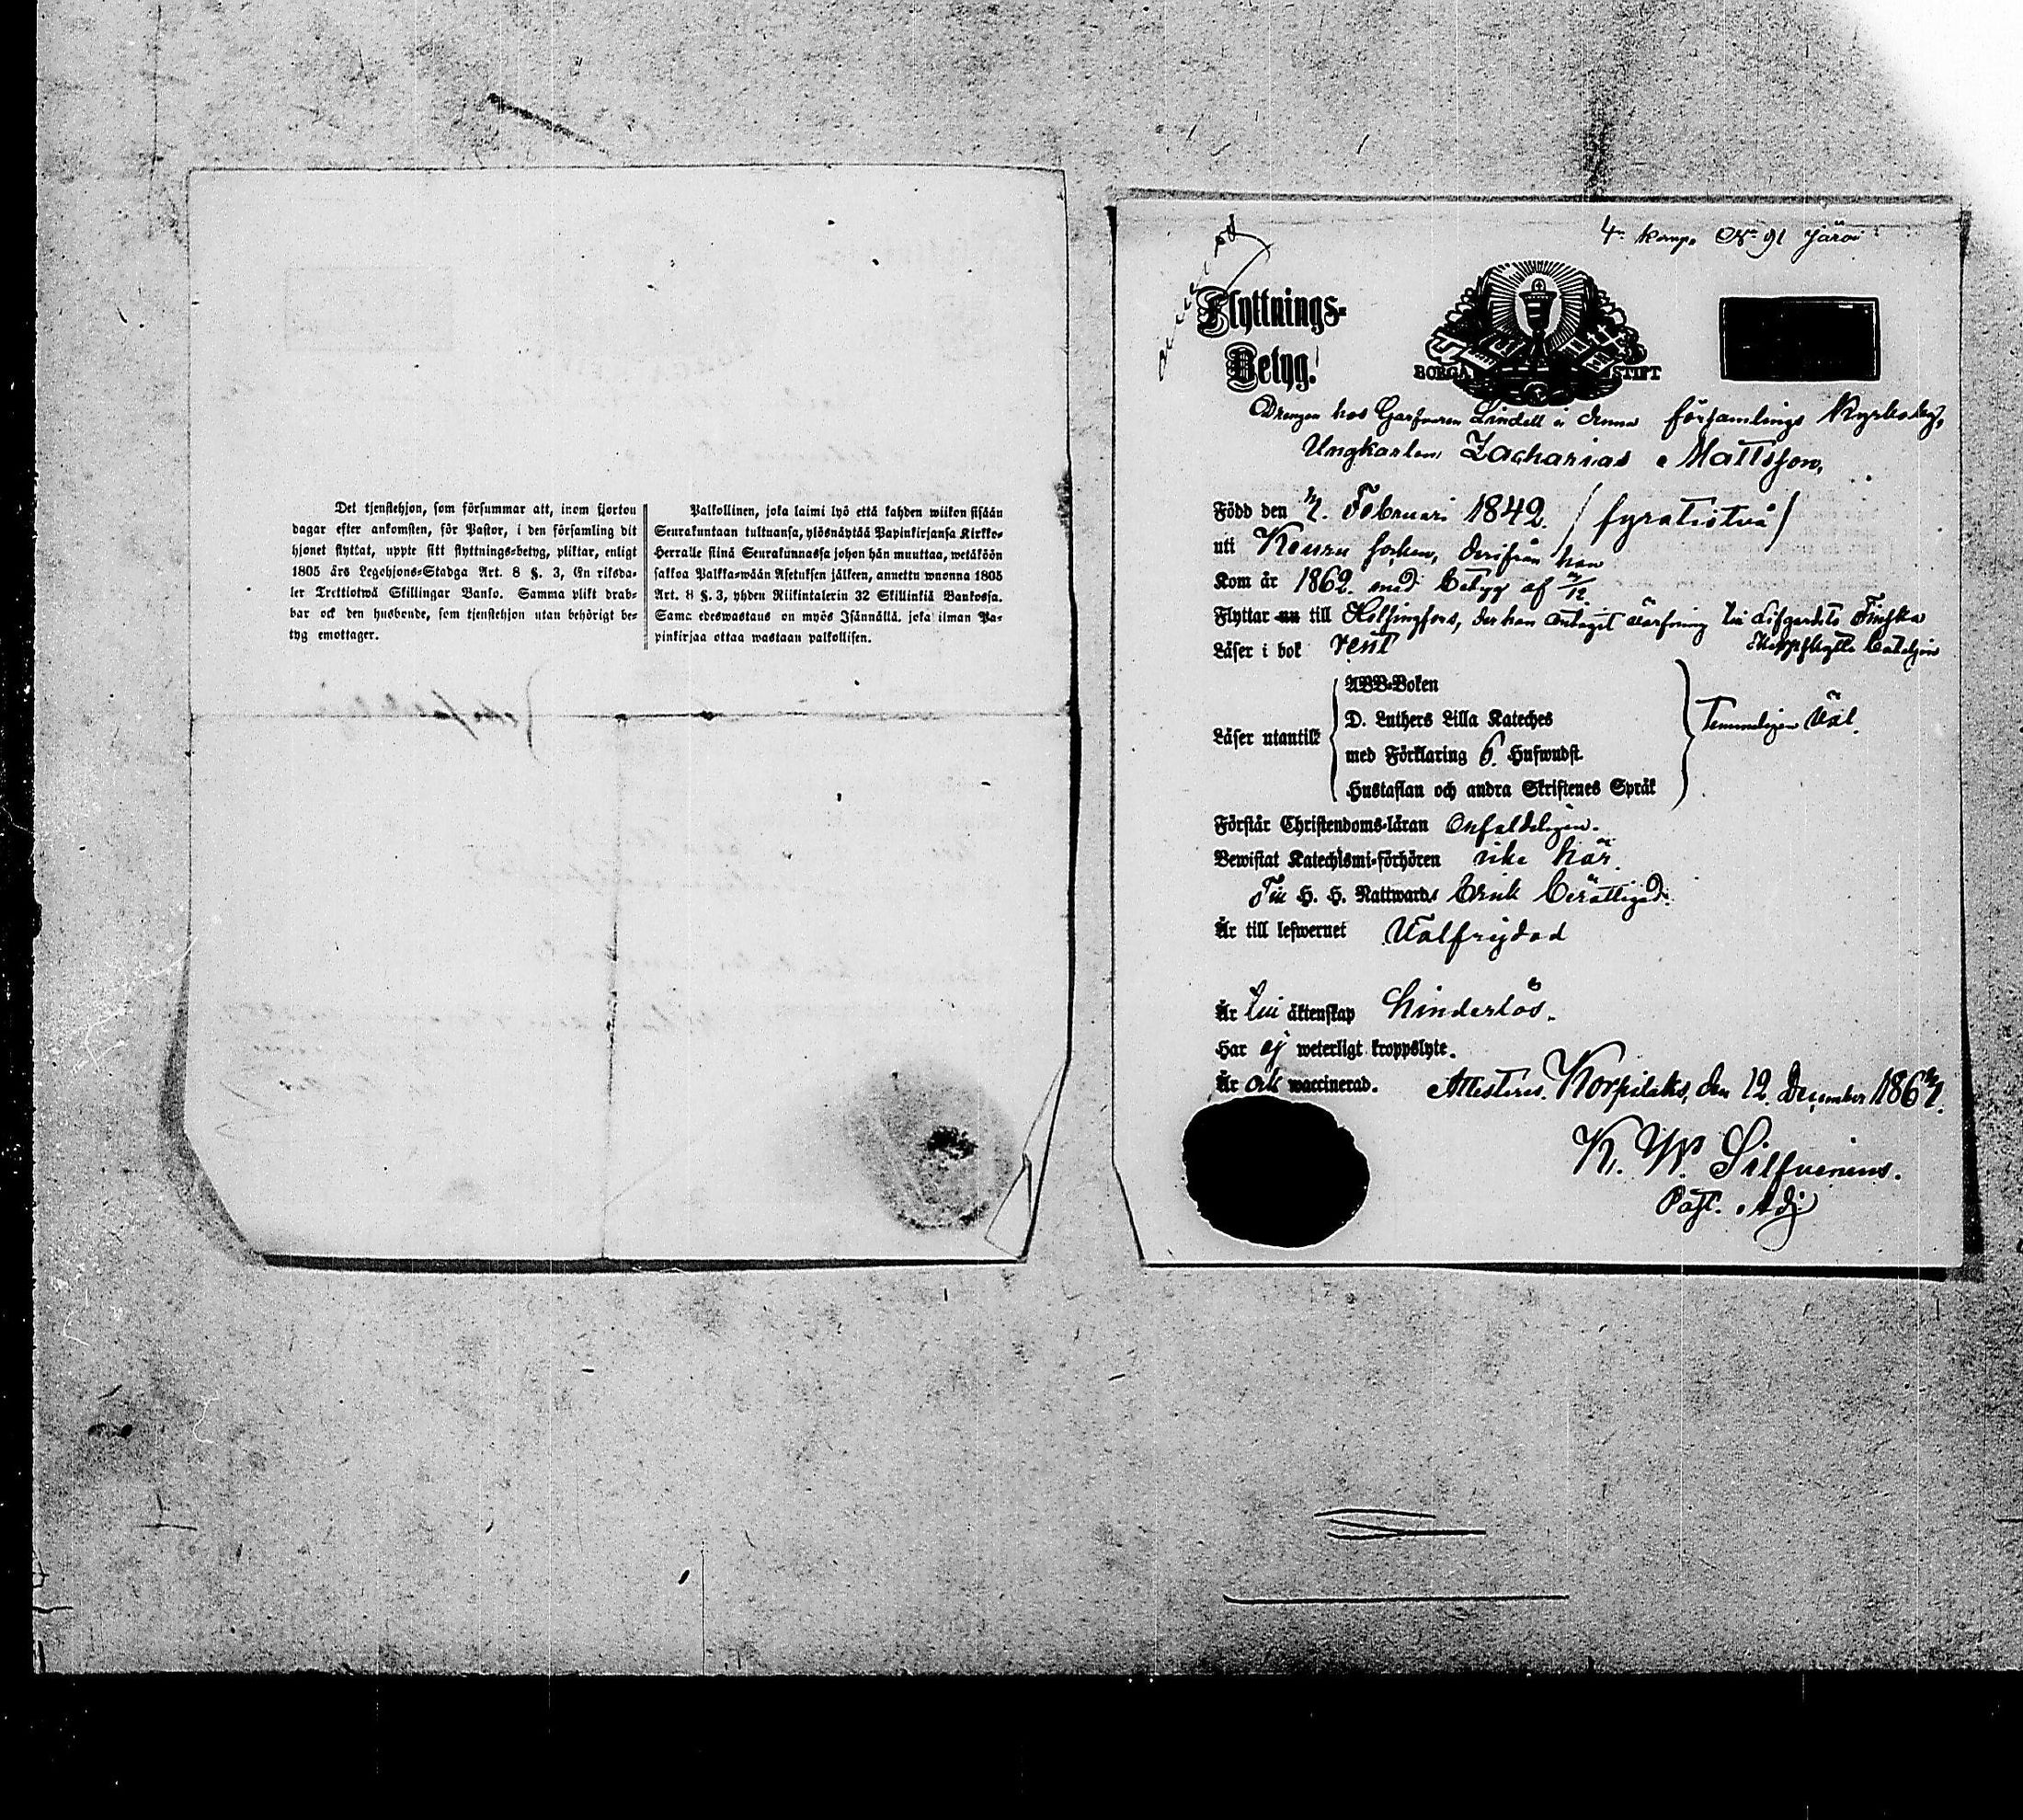 Det tjenstehjon, som försummar att, inom fjorton
dagar efter ankomsten, för Pastor, i den församling dit
hjonet flyttat, uppte sitt flyttnings-betyg, pliktar, enligt
1805 års Legohjons-Stadga Art. 8 §. 3, En riksda-
ler Trettiotwå Skillingar Banko. Samma plikt drab-
bar ock den husbonde, som tjenstehjon utan behörigt be-
tyg emottager.
Palkollinen, joka laimi lyö että kahden wiikon sisään
Seurakuntaan tultuansa, ylösnäytää Papinkirjansa Kirkko-
Herralle siinä Seurakunnassa johon hän muuttaa, wetäköön
sakkoa Palkka-wään Asetuksen jälkeen, annettu wuonna 1805
Art. 8 §. 3, yhden Riikintalerin 32 Skillinkiä Bankossa.
Sama edeswastaus on myös Isännällä, joka ilman Pa-
pinkirjaa ottaa wastaan palkollisen.
4. Komp. No 91 Järvi
Flyttnings-
Betyg.
BORGÅ STIFT
Drengen hos Garfvaren Lindell i denna församlings Kyrkoby,
Ungkarlen Zacharias Mattsson,
Född den 7. Februari 1842. / fyratiotvå /
uti Keuru socken, derifrån han
Kom år 1862. med betyg af
Flyttar nu till Helsingfors, der han antagit värfning vid Lifgardets Finska
Skarpskytte Bataljon
Läser i bok rent
Läser utantill
ABB-Boken
D. Luthers Lilla Kateches
med Förklaring 6. Hufwudst.
Hustaflan och andra Skriftenes Språk
Temmeligen väl.
Förstår Christendoms-läran Enfaldeligen.
Bewistat Katechismi-förhören icke här.
Till H. H. Nattwards bruk berättigad.
Är till lefwernet Välfrejdad
Är till äktenskap hinderlös.
Har ej weterligt kroppslyte.
Är ock waccinerad. Attesteras. Korpilaks, den 12. December 1867.
K. W. Silfvenius.
Past. Adj